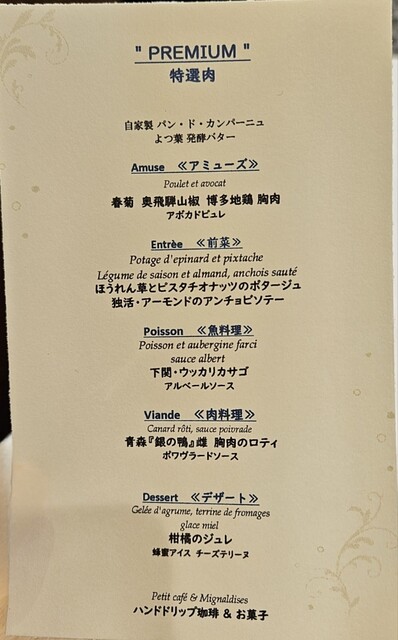 " PREMIUM "
特選肉
自家製 パン・ド・カンパーニュ
よつ葉 発酵バター
Amuse 《アミューズ》
Poulet et avocat
春菊 奥飛騨山椒 博多地鶏 胸肉
アボカドピュレ
Entrèe 《前菜》
Potage d'epinard et pixtache
Légume de saison et almand, anchois sauté
ほうれん草とピスタチオナッツのポタージュ
独活・アーモンドのアンチョビソテー
Poisson 《魚料理》
Poisson et aubergine farci
sauce albert
下関・ウッカリカサゴ
アルベールソース
Viande 《肉料理》
Canard rôti, sauce poivrade
青森『銀の鴨』雌 胸肉のロティ
ポワヴラードソース
Dessert 《デザート》
Gelée d'agrume, terrine de fromages
glace miel
柑橘のジュレ
蜂蜜アイス チーズテリーヌ
Petit café & Mignaldises
ハンドドリップ珈琲 & お菓子